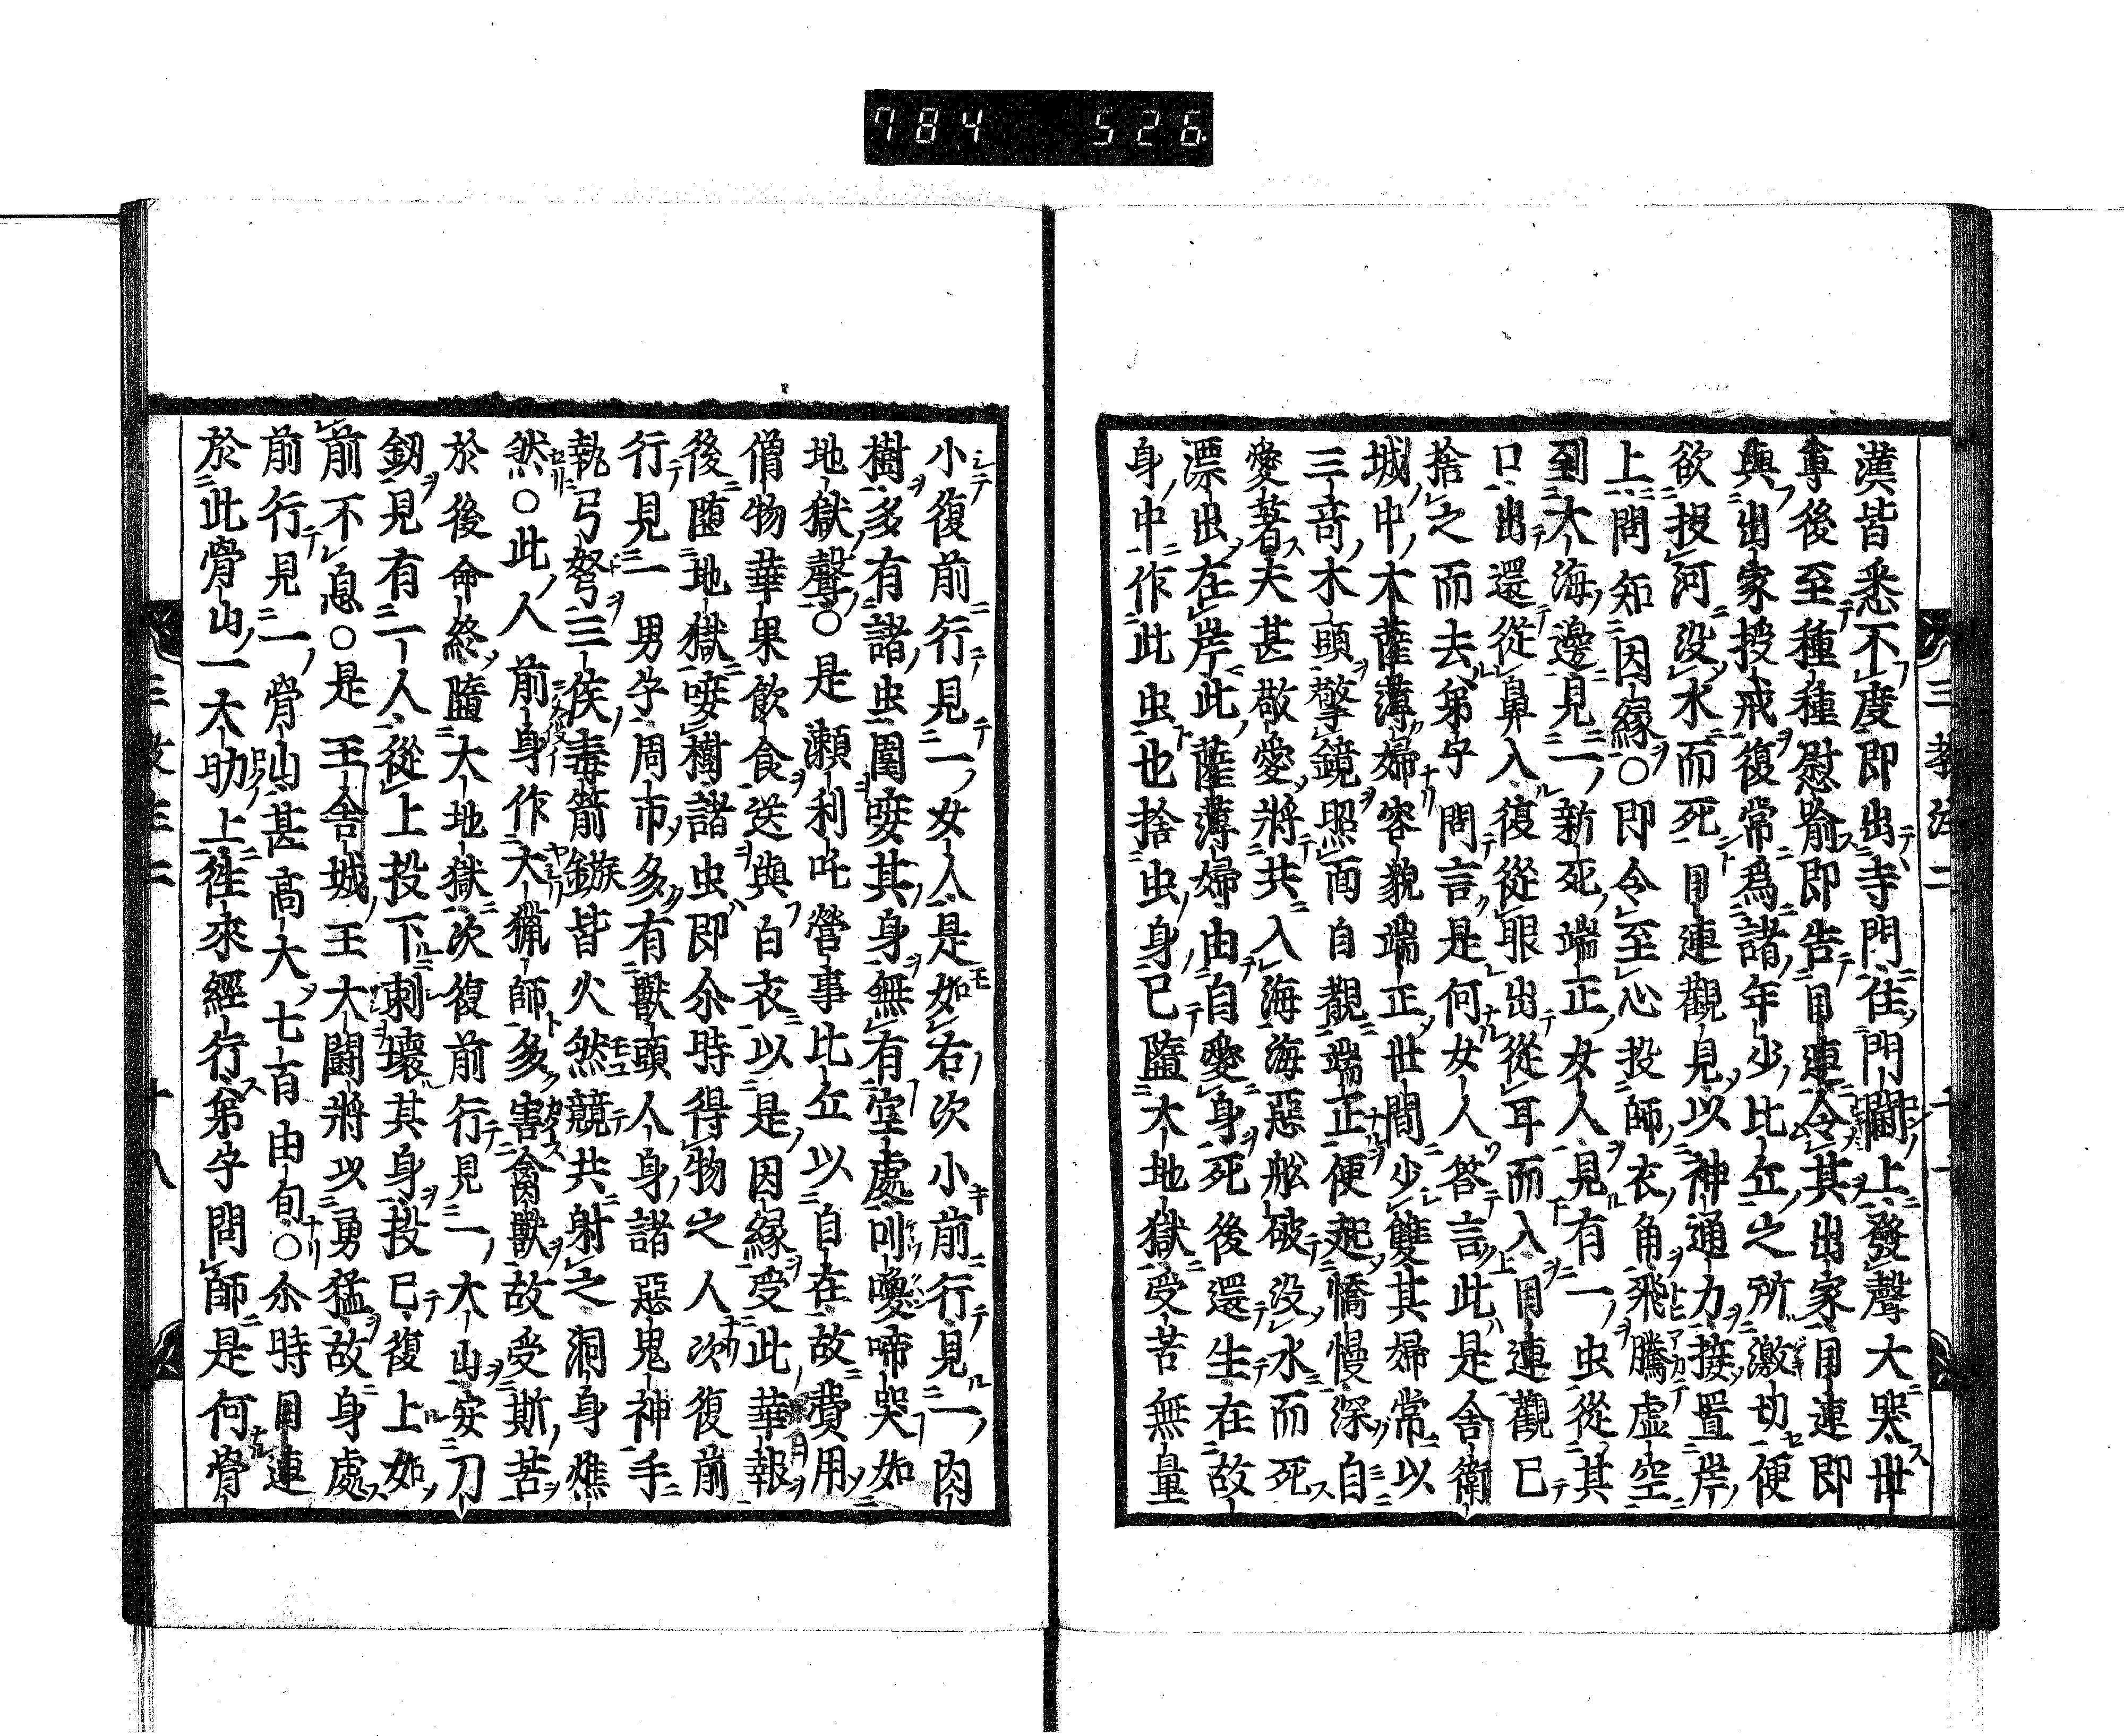 784 526
漢皆悉不度即出寺門住門閫上發聲大哭世
尊後至種種慰喻即告目連令其出家目連即
與出家授戒復常為諸年少比丘之所激切便
欲投河没水而死目連觀見以神通力接置岸
上問知因縁○即令至心投師衣角飛騰虛空
到大海邊見一新死端正女人見有一虫從其
口出還從鼻入復從眼出從耳而入目連觀已
捨之而去弟子問言是何女人答言此是舍衛
城中大薩薄婦容貌端正世間少雙其婦常以
三奇木頭擎鏡照面自觀端正便起憍慢深自
愛著夫甚敬愛將共入海海惡舩破没水而死
漂出在岸此薩薄婦由自愛身死後還生在故
身中作此虫也捨虫身已墮大地獄受苦無量
小復前行見一女人是如右次小前行見一肉
樹多有諸虫圍唼其身無有空處叫喚啼哭如
地獄聲○是瀬利吒營事比丘以自在故費用
僧物華果飲食送與白衣以是因縁受此華報
後墮地獄唼樹諸虫即尒時得物之人次復前
行見一男子周帀多有獸頭人身諸惡鬼神手
執弓弩三侯毒箭鏃皆火然競共射之洞身燋
然○此人前身作大獵師多害禽獸故受斯苦
於後命終墮大地獄次復前行見一大山安刀
釼見有一人從上投下刺壞其身投已復上如
前不息○是王舍城王大鬪將以勇猛故身處
前行見一骨山甚高大七百由旬○尒時目連
於此骨山一大肋上徃來經行弟子問師是何骨